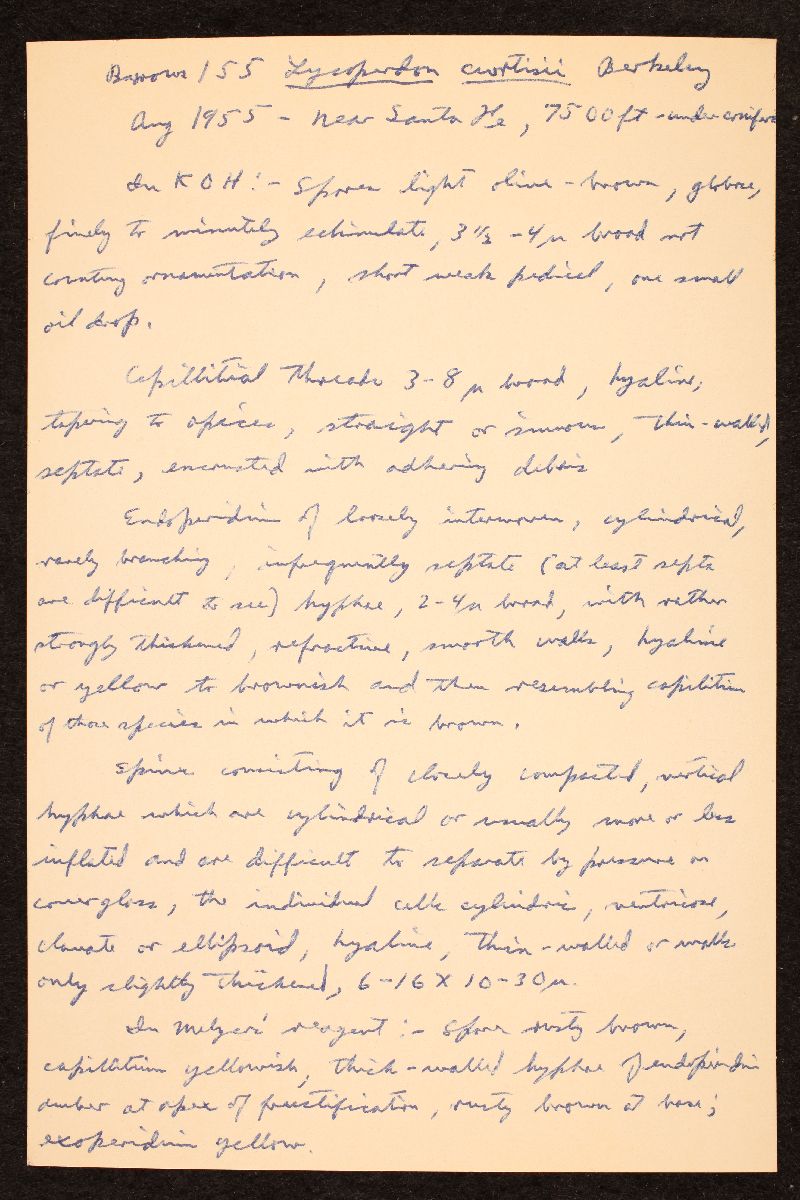 Barrows 155 Lycoperdon curtisii Berkeley
Aug 1955 - Near Santa Fe, 7500 ft - under conifers
In KOH:- Spores light olive-brown, globose,
finely to minutely echinulate, 3½-4µ broad not
counting ornamentation, short weak pedicel, one small
oil drop.
Capillitial threads 3-8µ broad, hyaline,
tapering to apices, straight or sinuous, thin-walled,
septate, encrusted with adhering debris
Endoperidium of loosely interwoven, cylindrical,
rarely branching, infrequently septate (at least septa
are difficult to see) hyphae, 2-4µ broad, with rather
strongly thickened, refractive, smooth walls, hyaline
or yellow to brownish and then resembling capillitium
of those species in which it is brown.
Spines consisting of closely compacted, vertical
hyphae which are cylindrical or usually more or less
inflated and are difficult to separate by pressure on
coverglass, the individual cells cylindric, ventricose,
clavate or ellipsoid, hyaline, thin-walled or walls
only slightly thickened, 6-16 X 10-30µ.
In Melzers' reagent:- Spores rusty brown,
capillitium yellowish, thick-walled hyphae of endoperidium
amber at apex of fructification, rusty brown at base;
exoperidium yellow.